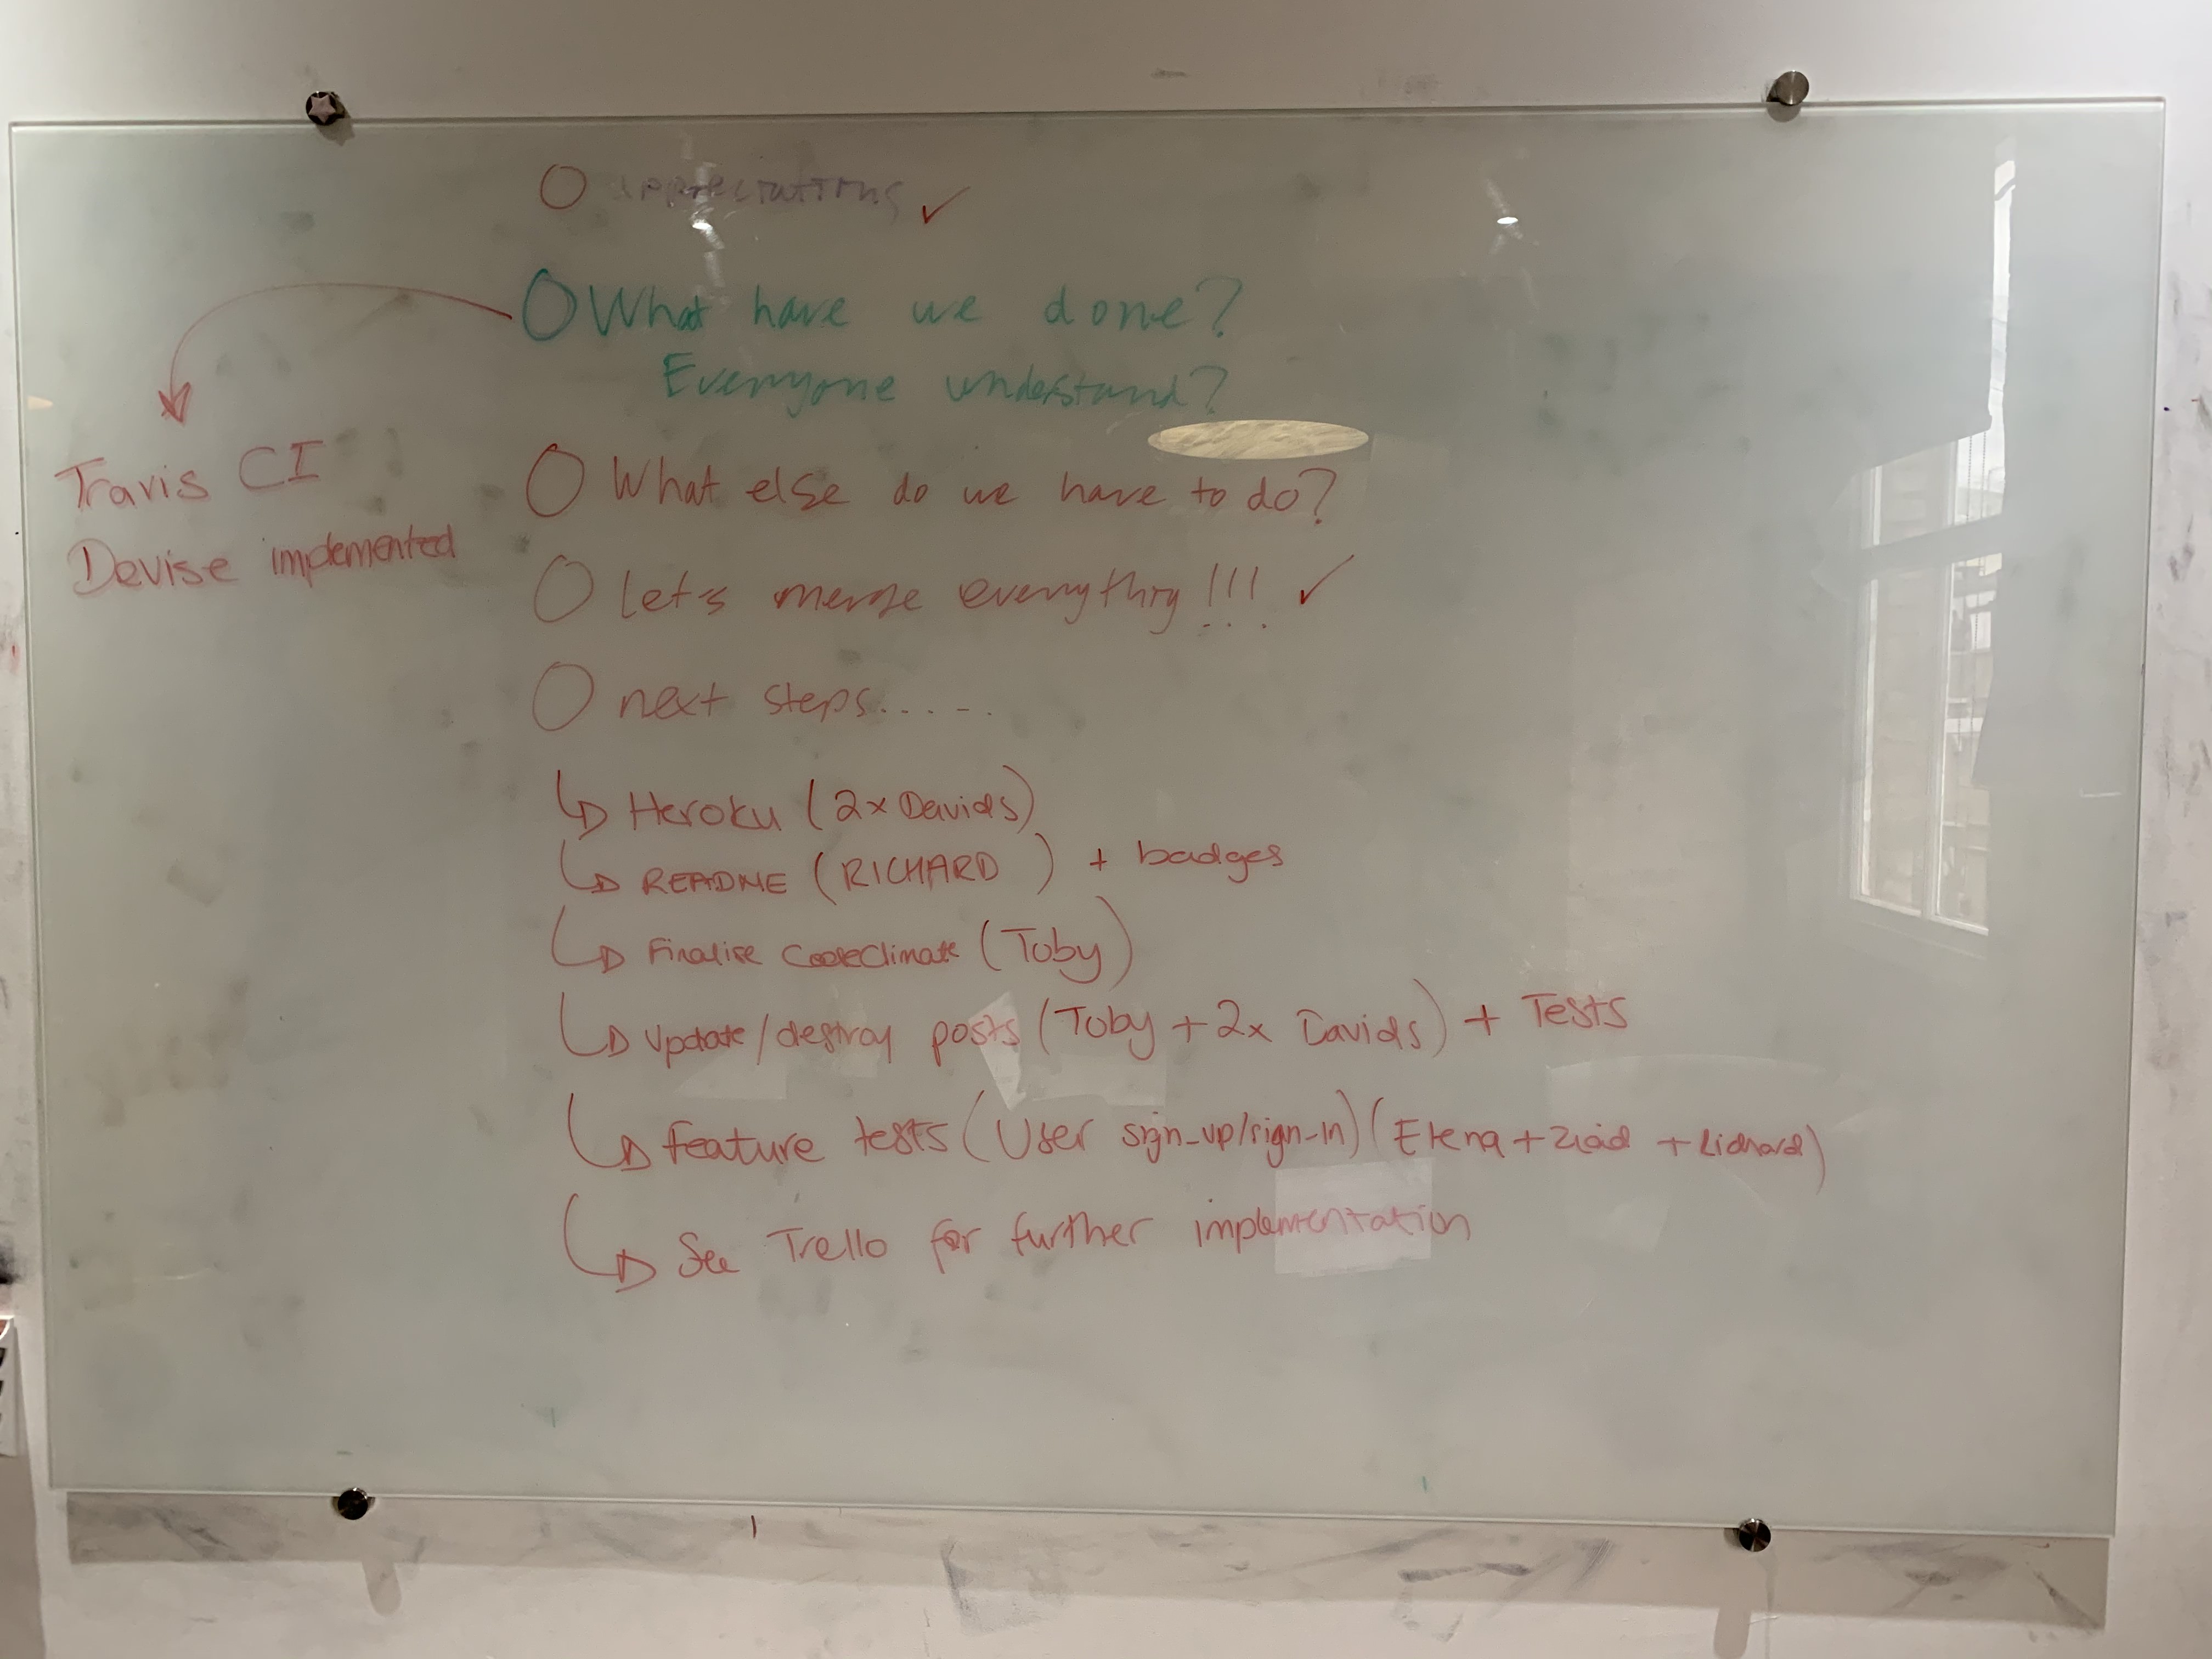 appreciations ✓
What have we done?
Everyone understand?
Travis CI
Devise implemented
What else do we have to do?
let's merge everything!!! ✓
next steps.....
Heroku (2x Davids)
README (RICHARD) + badges
Finalise CodeClimate (Toby)
Update/destroy posts (Toby + 2x Davids) + Tests
Feature tests (User sign-up/sign-in) (Elena + Ziad + Richard)
See Trello for further implementation